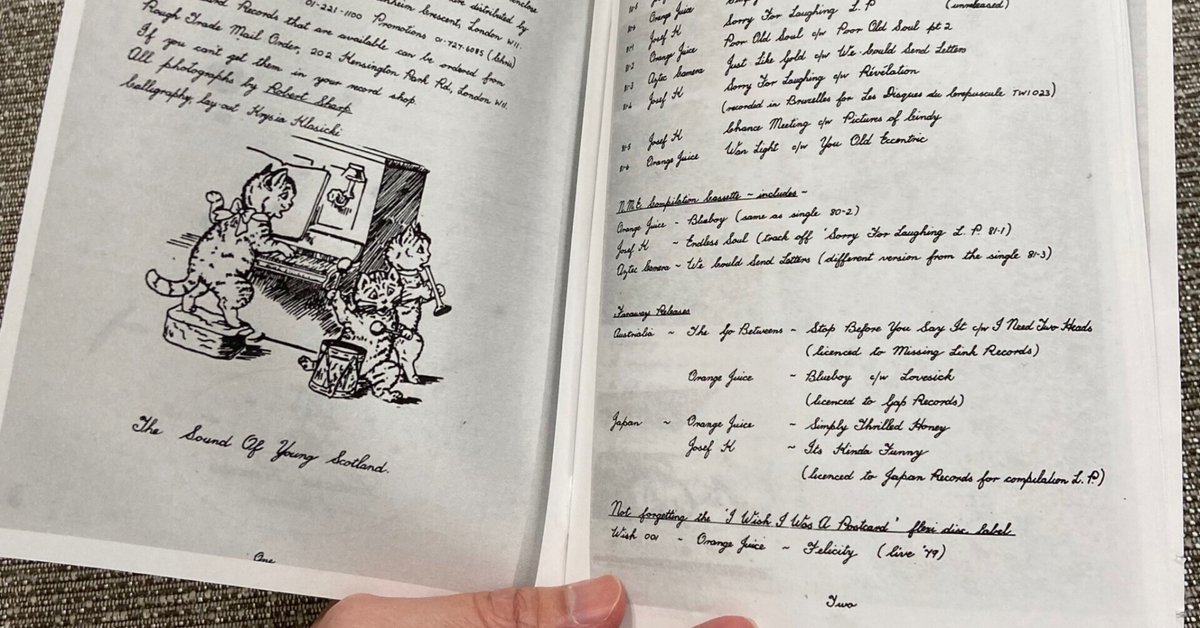 distributed by
Crescent, London W11.
01-221-1100 Promotions 01-727-6085
Records that are available can be ordered from
Rough Trade Mail Order, 202 Kensington Park Rd, London W11.
If you can't get them in your record shop.
All photographs by Robert Sharp
Calligraphy, lay out Krysia Klasicki
The Sound Of Young Scotland.
One
Orange Juice
Josef K Sorry For Laughing L.P. (unreleased)
Orange Juice Poor Old Soul c/w Poor Old Soul pt 2
Aztec Camera Just Like Gold c/w We Could Send Letters
Josef K Sorry For Laughing c/w Révélation
(recorded in Bruxelles for Les Disques du Crepuscule TWI 023)
81-5 Josef K Chance Meeting c/w Pictures of Cindy
81-6 Orange Juice Wan Light c/w You Old Eccentric
N.M.E Compilation Cassette ~ includes ~
Orange Juice - Blueboy (same as single 80-2)
Josef K ~ Endless Soul (track off 'Sorry For Laughing L.P. 81-1)
Aztec Camera ~ We Could Send Letters (different version from the single 81-3)
Faraway Releases
Australia ~ The Go Betweens - Stop Before You Say It c/w I Need Two Heads
(licenced to Missing Link Records)
Orange Juice ~ Blueboy c/w Lovesick
(licenced to Gap Records)
Japan ~ Orange Juice ~ Simply Thrilled Honey
Josef K ~ Its Kinda Funny
(licenced to Japan Records for compilation L.P.)
Not forgetting the 'I Wish I Was A Postcard' flexi disc label
Wish 001 - Orange Juice ~ Felicity (live '79)
Two